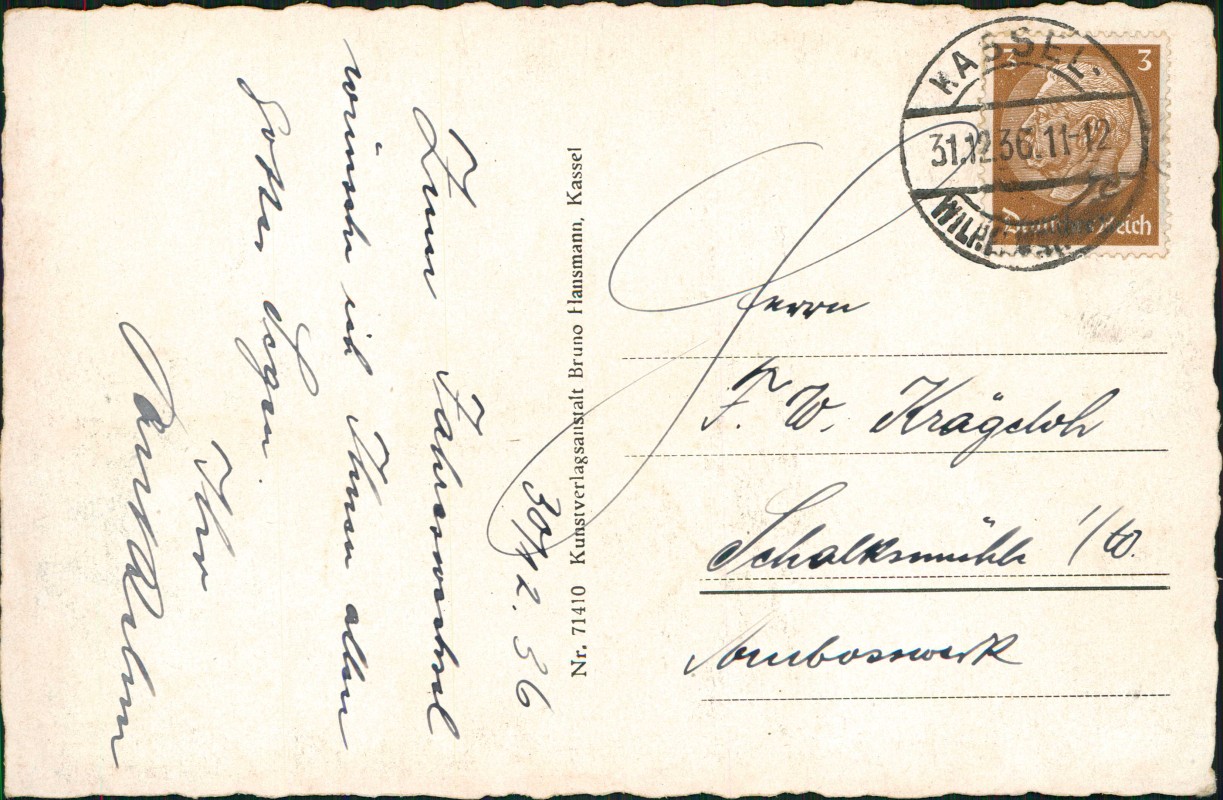 30/12. 36
Zum Jahreswechsel
wünsche ich Ihnen allen
Gottes Segen.
Ihr
Nr. 71410 Kunstverlagsanstalt Bruno Hansmann, Kassel
KASSEL
31.12.36.11-12
3
3
Deutsches Reich
Herrn
F. W. Krägeloh
Schalksmühle i/W.